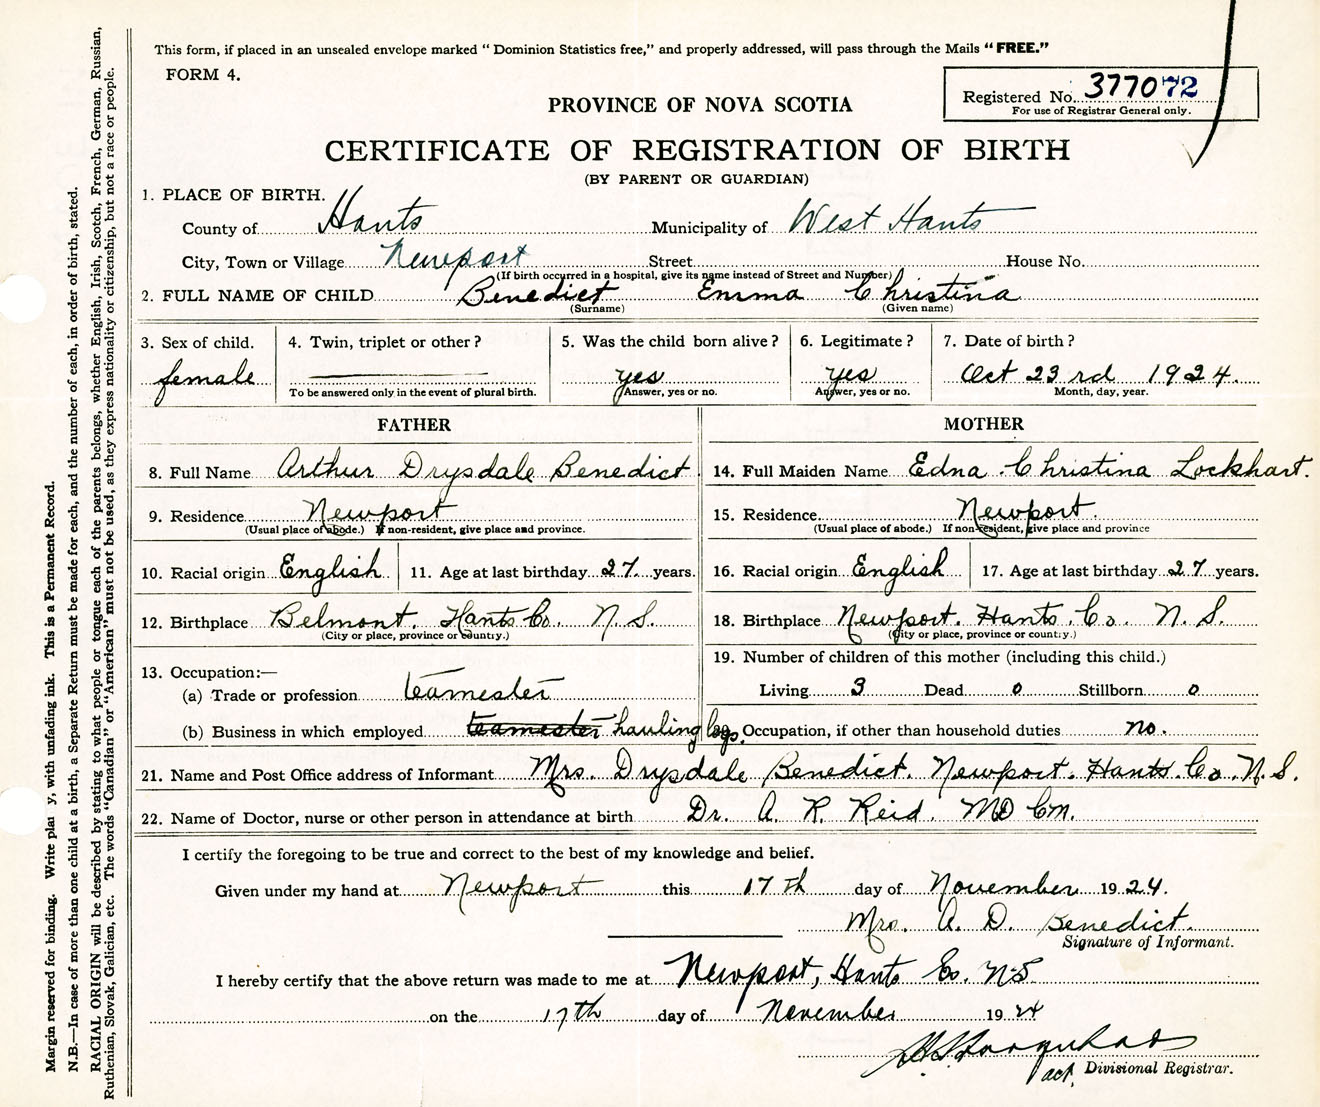 This form, if placed in an unsealed envelope marked "Dominion Statistics free," and properly addressed, will pass through the Mails "FREE."
FORM 4.
Registered No. 377072
For use of Registrar General only.
PROVINCE OF NOVA SCOTIA
CERTIFICATE OF REGISTRATION OF BIRTH
(BY PARENT OR GUARDIAN)
1. PLACE OF BIRTH.
County of Hants Municipality of West Hants
City, Town or Village Newport Street House No.
(If birth occurred in a hospital, give its name instead of Street and Number)
2. FULL NAME OF CHILD Benedict Emma Christina
(Surname) (Given name)
3. Sex of child. 4. Twin, triplet or other? 5. Was the child born alive? 6. Legitimate? 7. Date of birth?
female yes yes Oct 23rd 1924.
To be answered only in the event of plural birth. Answer, yes or no. Answer, yes or no. Month, day, year.
FATHER MOTHER
8. Full Name Arthur Drysdale Benedict 14. Full Maiden Name Edna Christina Lockhart.
9. Residence Newport 15. Residence Newport.
(Usual place of abode.) If non-resident, give place and province. (Usual place of abode.) If non-resident, give place and province
10. Racial origin English 11. Age at last birthday 27 years. 16. Racial origin English 17. Age at last birthday 27 years.
12. Birthplace Belmont. Hants Co. N.S. 18. Birthplace Newport. Hants. Co. N.S.
(City or place, province or country.) (City or place, province or country.)
13. Occupation:— 19. Number of children of this mother (including this child.)
(a) Trade or profession teamester Living 3 Dead 0 Stillborn 0
(b) Business in which employed teamester hauling logs. Occupation, if other than household duties no.
21. Name and Post Office address of Informant Mrs. Drysdale Benedict. Newport. Hants. Co. N.S.
22. Name of Doctor, nurse or other person in attendance at birth Dr. A. R. Reid. MD CM.
I certify the foregoing to be true and correct to the best of my knowledge and belief.
Given under my hand at Newport this 17th day of November 1924.
Mrs. A. D. Benedict.
Signature of Informant.
I hereby certify that the above return was made to me at Newport, Hants Co. N.S.
on the 17th day of November 1924
act. Divisional Registrar.
Margin reserved for binding. Write plai y, with unfading ink. This is a Permanent Record.
N.B.—In case of more than one child at a birth, a Separate Return must be made for each, and the number of each, in order of birth, stated.
RACIAL ORIGIN will be described by stating to what people or tongue each of the parents belongs, whether English, Irish, Scotch, French, German, Russian,
Ruthenian, Slovak, Galician, etc. The words "Canadian" or "American" must not be used, as they express nationality or citizenship, but not a race or people.